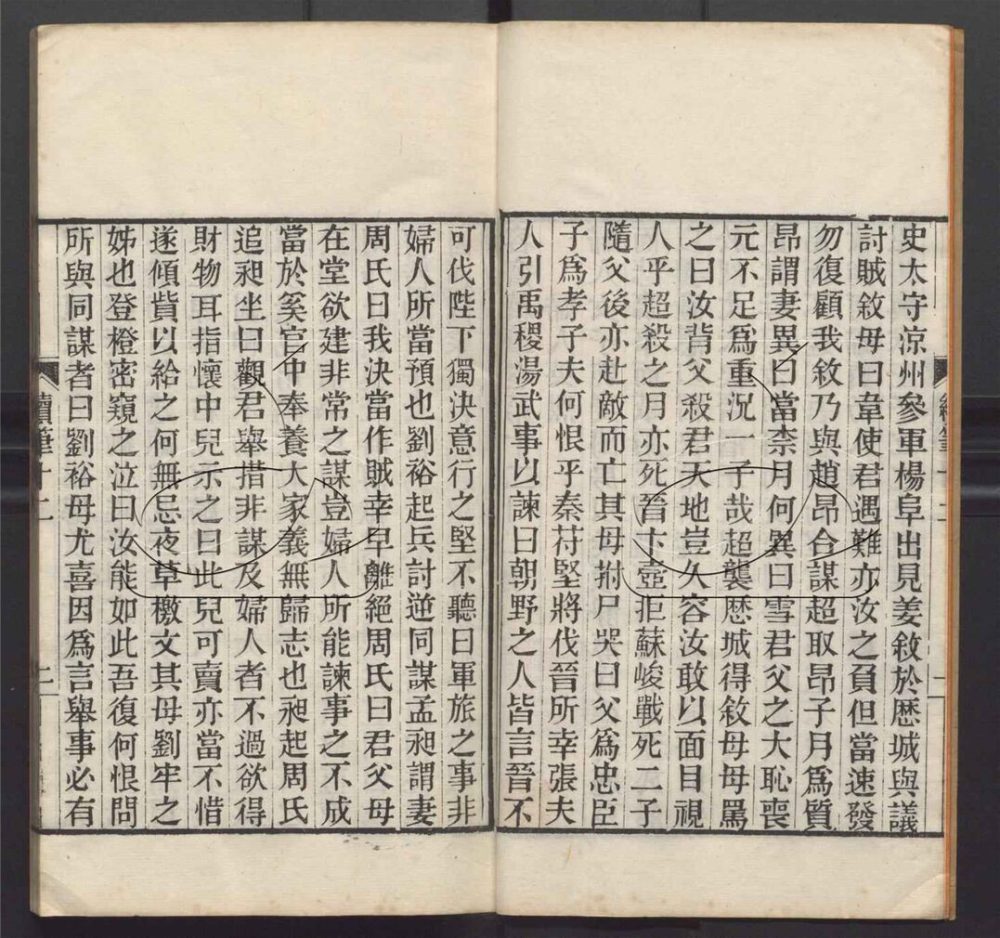 史太守涼州參軍楊阜出見姜敘於歷城與議
討賊敘母曰韋使君遇難亦汝之負但當速發
勿復顧我敘乃與趙昂合謀超取昂子月爲質
昂謂妻異曰當柰月何異曰雪君父之大恥喪
元不足爲重況一子哉超襲歷城得敘母母罵
之曰汝背父殺君天地豈久容汝敢以面目視
人乎超殺之月亦死晉卞壼拒蘇峻戰死二子
隨父後亦赴敵而亡其母拊尸哭曰父爲忠臣
子爲孝子夫何恨乎秦苻堅將伐晉所幸張夫
人引禹稷湯武事以諫曰朝野之人皆言晉不
可伐陛下獨決意行之堅不聽曰軍旅之事非
婦人所當預也劉裕起兵討逆同謀孟昶謂妻
周氏曰我決當作賊幸早離絕周氏曰君父母
在堂欲建非常之謀豈婦人所能諫事之不成
當於奚官中奉養大家義無歸志也昶起周氏
追昶坐曰觀君舉措非謀及婦人者不過欲得
財物耳指懷中兒示之曰此兒可賣亦當不惜
遂傾貲以給之何無忌夜草檄文其母劉牢之
姊也登橙密窺之泣曰汝能如此吾復何恨問
所與同謀者曰劉裕母尤喜因爲言舉事必有
續筆十二
二